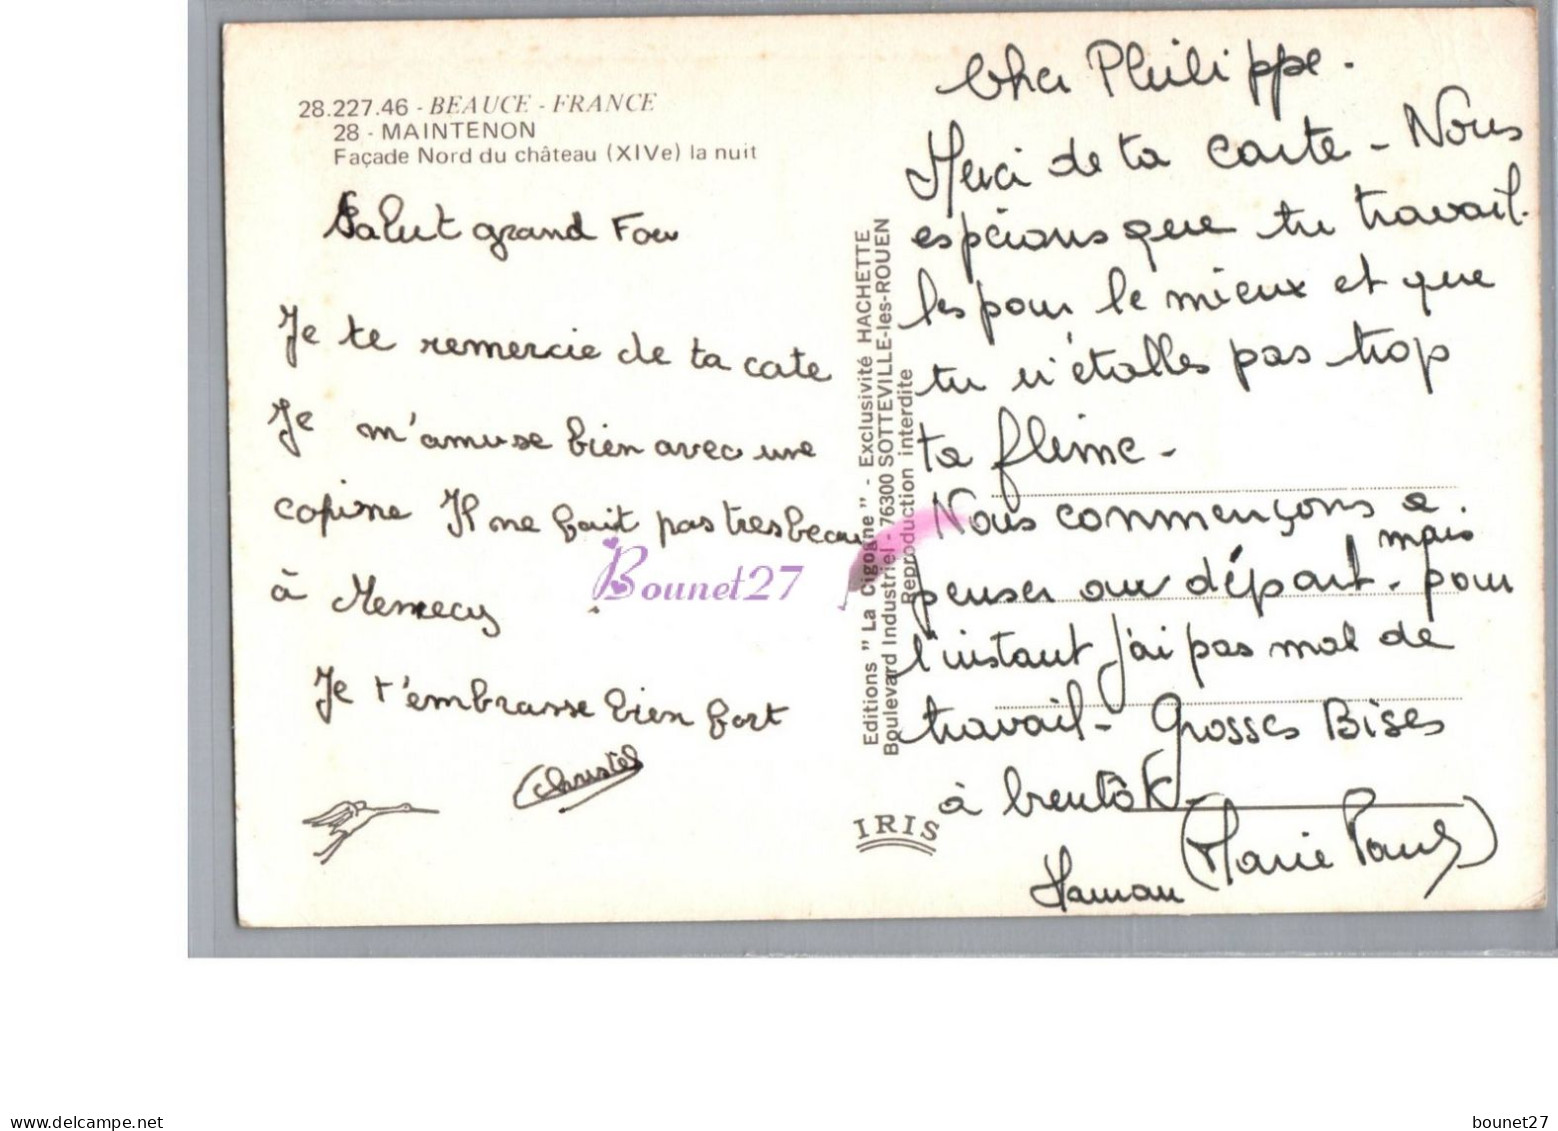 28.227.46 - BEAUCE - FRANCE
28 - MAINTENON
Façade Nord du château (XIVe) la nuit
Salut grand Fou
Je te remercie de ta cate
Je m'amuse bien avec une
copine Il ne fait pas tres beau
à Mennecy
Je t'embrasse bien fort
Christel
Editions " La Cigogne " - Exclusivité HACHETTE
Boulevard Industriel - 76300 SOTTEVILLE-les-ROUEN
Reproduction interdite
IRIS
Bounet27
Cher Philippe.
Merci de ta carte - Nous
espérons que tu travail-
les pour le mieux et que
tu n'étalles pas trop
ta flème -
Nous commençons a
penser au départ - mais pour
l'instant j'ai pas mal de
travail - Grosses Bises
à bientôt -
Maman (Marie Paule)
delcampe.net
bounet27